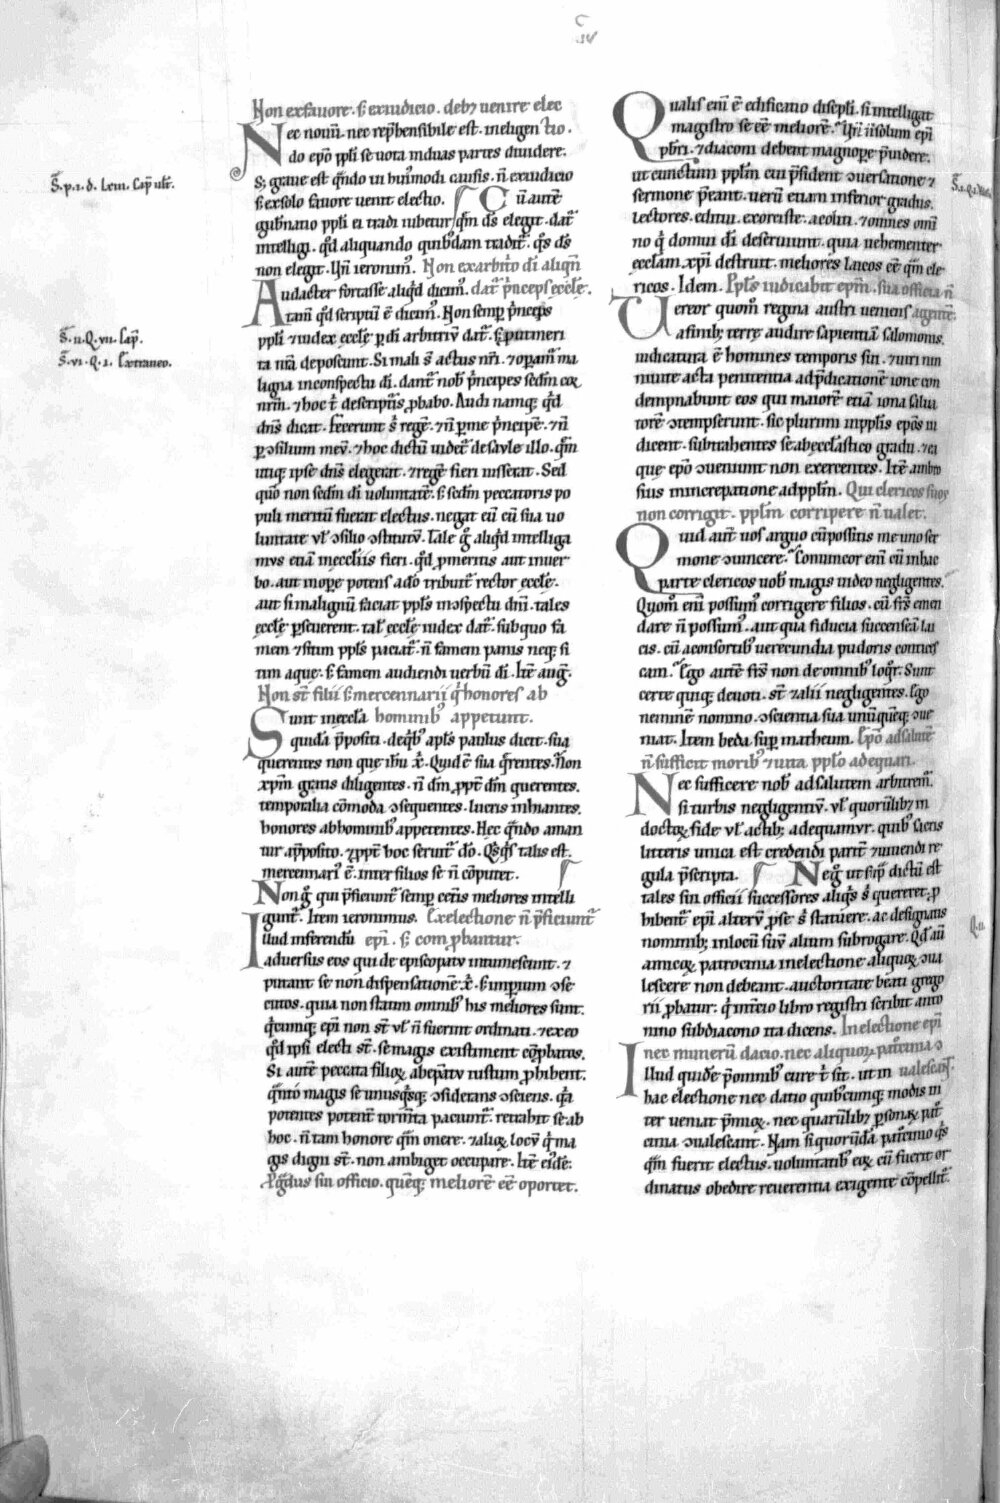 C
.IV
Non ex fauore. ſ; ex iudicio. debꝫ uenire elec
Nec nouū. nec rep̄henſibile eſt. in eligen tio.
do ep̄o pp̄li ſe uota in duas partes diuidere.
S; graue eſt q̄ndo in hui᾽modi cauſis. n̄ ex iudicio
ſ; ex ſolo fauore uenit electio. Cū autē
gub̄natio pp̄li ei tradi iubetur quē d̄s elegit. dat᷑
intelligi. qd̄ aliquando quib᾽dam tradit᷑. q̄s d̄s
non elegit. Vn̄ ieronim᾽. Non ex arb̄rio dī aliqn̄
Audacter fortaſſe aliqd̄ dicim᾽. dat᷑ p̄nceps eccl̄e.
tam̄ qd̄ ſcriptū ē dicim᾽. Non ſemp p̄nceps
pp̄li ⁊ iudex eccl̄e p dī arbitriū dat᷑. ſ; put meri
ta nr̄a depoſcunt. Si mali ſ̄t actus nr̄i. ⁊ opam᷑ ma
ligna in conſpectu dī. dant᷑ nob᾽ p̄ncipes ſedm̄ cor
nr̄m. ⁊ hoc de ſcripturis ꝓbabo. Audi namq; qd̄
dn̄s dicat. fecerunt ſ᷑ regē. ⁊ n̄ p me p̄ncipē. ⁊ n̄
p ɔſilium meū. ⁊ hoc dictū uidet᷑ de ſaule illo. quē
utiq; ipſe dn̄s elegerat. ⁊ regē fieri iuſſerat. Sed
quō non ſedm̄ dī uoluntatē. ſ; ſedm̄ peccatoris po
puli meritū fuerat electus. negat eū cū ſua uo
luntate vl̄ ɔſilio ɔſtitutū. Tale g̊ aliqd̄ intelliga
mus etiā in eccl̄iis fieri. qd̄ p meritis aut in uer
bo. aut in ope potens a dō tribuit᷑ rector eccl̄e.
aut ſi malignū faciat pp̄ls in ɔſpectu dn̄i. tales
eccl̄e pſeuerent. tal᾽ eccl̄e iudex dat᷑. ſub quo fa
mem ⁊ ſitim pp̄ls paciat᷑. n̄ famem panis neq; ſi
tim aque. ſ; famem audiendi uerbū dī. Itē aug᾽.
Non ſt̄ filii ſ; mercennarii q̇ honores ab
Sunt in eccl̄a hominib᾽ appetunt.
quidā p̄poſiti. de qb᾽ apl̄s paulus dicit. ſua
querentes non que ih̄u x̄. Quid ē ſua q̄rentes. Non
xp̄m gratis diligentes. n̄ dm̄ ppt᷑ dm̄ querentes.
temporalia cōmoda ɔſequentes. lucris inhiantes.
honores ab hominib᾽ appetentes. Hec q̄ndo aman
tur a p̄poſito. ⁊ ppt᷑ hoc ſeruit᷑ dō. Qſq̇s talis eſt.
mercennari᾽ ē. inter filios ſe n̄ cōputet.
Non g̊ qui p̄ficiunt᷑ ſemp cet᷑is meliores intelli
gunt᷑. Item ieronimus. Ex electione n̄ p̄ficiunt᷑
Illud inferendū epī. ſ; com ꝓbantur.
aduerſus eos qui de epiſcopatu intumeſcunt. ⁊
putant ſe non diſpenſationē x̄. ſ; imp̄ium ɔſe
cutos. quia non ſtatim omnib᾽ his meliores ſunt.
q̇cumq; epī non ſt̄ vl̄ n̄ fuerint ordinati. ⁊ ex eo
qd̄ ipſi electi ſt̄. ſe magis exiſtiment cōꝓbatos.
Si autē peccata filior᾽ ab ep̄atu iuſtum ꝓhibent.
q̄nto magis ſe unusq̇sq; ɔſiderans ɔſciens. q̄a
potentes potent᷑ torm̄ta paciunt᷑. retrahit ſe ab
hoc. n̄ tam honore quā onere. ⁊ alior᾽ locū q̇ ma
gis digni ſt̄. non ambiget occupare. Itē eidē.
P̄gdus ſui officio. quēq; meliorē eē oportet.
Qualis enī ē edificatio diſcipli. ſi intelligat
magiſtro ſe eē meliorē. Vn̄ n̄ ſolum epī
pb̄ri. ⁊ diaconi debent magnope p̄uidere.
ut cunctum pp̄lm cui p̄ſident ɔuerſatione ⁊
ſermone p̄eant. uerū etiam inferior gradus.
lectores. editui. exorciſte. acoliti. ⁊ omnes omī
no q̇ domui dī deſeruiunt. quia uehementer
eccl̄am xp̄i deſtruit. meliores laicos eē quā cle
ricos. Idem. Pp̄ls iudicabit ep̄m. ſua officia n̄
Vereor quom̄ regina auſtri ueniens agente.
a finib; terre audire ſapientiā ſalomonis.
iudicatura ē homines temporis ſui. ⁊ uiri nin
niuite acta penitentia ad p̄dicationē ione con
dempnabunt eos qui maiorē etiā iona ſalua
torē ɔtempſerunt. ſic plurimi in pp̄lis ep̄os iu
dicent. ſubtrahentes ſe ab eccl̄aſtico gradu. ⁊ ea
que ep̄o ɔueniunt non exercentes. Itē ambro
ſius in increpatione ad pp̄lm. Qui clericos ſuos
non corrigit. pp̄lm corripere n̄ ualet.
Quid aut̄ uos arguo cū poſſitis me uno ſer
mone ɔuincere. Conuincor enī cū in hac
parte clericos uob᾽ magis uideo negligentes.
Quom̄ enī poſſum᾽ corrigere filios. cū fr̄s emen
dare n̄ poſſum᾽. aut qua fiducia ſuccenſeā lai
cis. cū a conſortib᾽ uerecundia pudoris conticeſ
cam. Ego autē fr̄s non de omnib᾽ loq̇r. Sunt
certe quiq; deuoti. ſt̄ ⁊ alii negligentes. Ego
neminē nomino. ɔſcientia ſua unū quēq; ɔue
niat. Item beda ſup matheum. Ep̄o ad ſalutē
n̄ ſufficit morib᾽ ⁊ uita pp̄lo adequari.
Nec ſufficere nob᾽ ad ſalutem arbitrem᷑.
ſi turbis negligentiū. vl̄ quorūlibꝫ in
doctor᾽ fide vl̄ actib; adequamur. quib᾽ ſacris
litteris unica eſt credendi parit᷑ ⁊ uiuendi re
gula p̄ſcripta. Neq; ut ſup᷑ dictū eſt
tales ſui officii ſucceſſores aliq̇s ſ᷑ quereret. p
hibent᷑ epī alterū p ſe ſ᷑ ſtatuere. ac deſignatis
nominib; in locū ſuū alium ſubrogare. Qd̄ aū
amicor᾽ patrocinia in electione aliquor᾽ ɔua
leſcere non debeant. auctoritate beati grego
rii ꝓbatur. q̇ in tercio libro regiſtri ſcribit anto
nino ſubdiacono ita dicens. In electione epī
nec munerū dacio. nec aliquor᾽ pat᷑cinia ɔ
Illud quidē p̄ omnib᾽ cure t᷑ ſit. ut in ualeſcāt.
hac electione nec datio quibuſcumq; modis in
ter ueniat p̄mior᾽. nec quarūlibꝫ pſonar᾽ pat᷑
cinia ɔualeſcant. Nam ſi quorūdā pat᷑cinio q̇s
quā fuerit electus. uoluntatib᾽ eor᾽ cū fuerit or
dinatus obedire reuerentia exigente cōpellit᷑.
S̄. p. 1. d. Lem. Cap̄ ult̄.
S̄. ii. Q. vii. Cap̄.
S̄. vi. Q. 1. Ex traneo.
Q. ii.